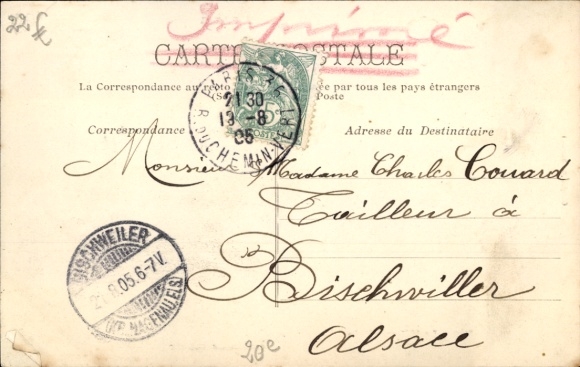 Imprimé
CARTE POSTALE
La Correspondance au recto ée par tous les pays étrangers
(Se Poste
Correspondance Adresse du Destinataire
PARIS
21 30
13 -8
05
R. DU CHEMIN-VERT
5
POSTES
Monsieur Madame Charles Couard
Tailleur à
Bischwiller
Alsace
BISCHWEILER
05.6-7V.
(KR. HAGENAU.ELS.)
20e